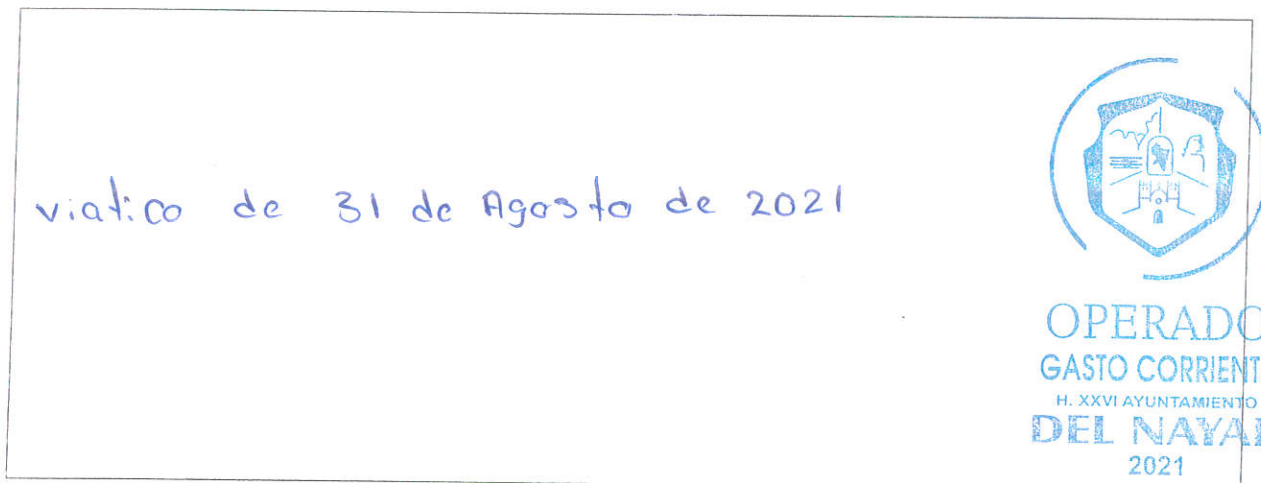 viatico de 31 de Agosto de 2021
OPERADO
GASTO CORRIENT
H. XXVI AYUNTAMIENTO
DEL NAYA
2021